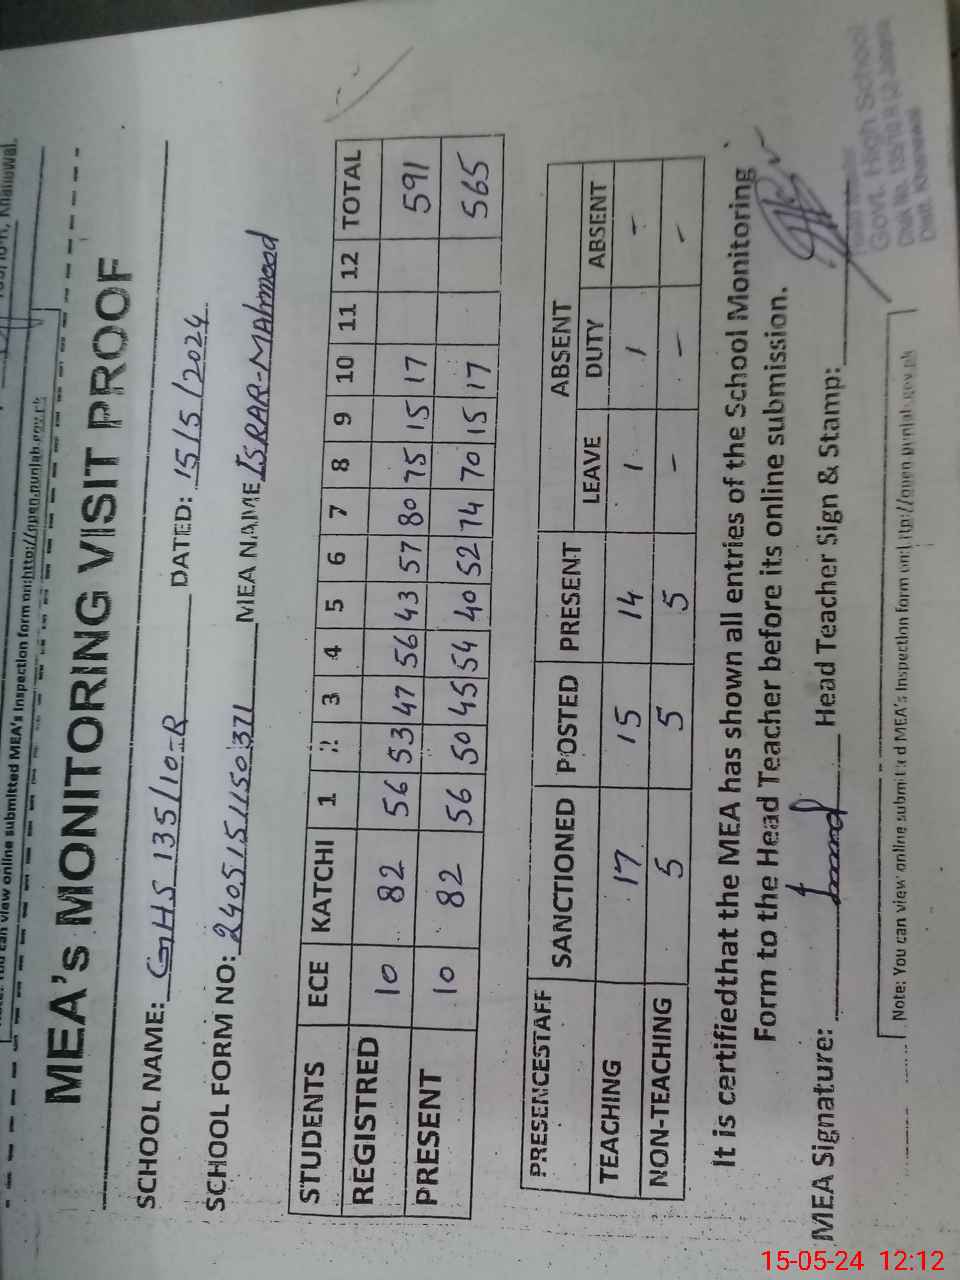 can view online submitted MEA's Inspection form on:http://open.punjab.gov.pk
MEA's MONITORING VISIT PROOF
SCHOOL NAME: GHS 135/10-R DATED: 15/5/2024
SCHOOL FORM NO: 240515115037L MEA NAME ISRAR-MAHmood
STUDENTS ECE KATCHI 1 2 3 4 5 6 7 8 9 10 11 12 TOTAL
REGISTRED 10 82 56 53 47 56 43 57 80 75 15 17 591
PRESENT 10 82 56 50 45 54 40 52 74 70 15 17 565
PRESENCESTAFF SANCTIONED POSTED PRESENT ABSENT
LEAVE DUTY ABSENT
TEACHING 17 15 14 1 1 -
NON-TEACHING 5 5 5 - - -
It is certifiedthat the MEA has shown all entries of the School Monitoring
Form to the Head Teacher before its online submission.
MEA Signature: Head Teacher Sign & Stamp:
Govt. High School
Distt. Khanewal
Note: You can view online submitted MEA's Inspection form on:http://open.punjab.gov.pk
15-05-24 12:12